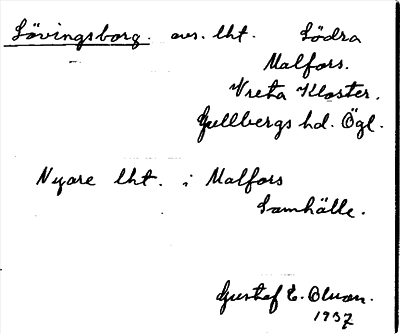 Lövingsborg. avs. lht. Södra
Malfors.
Vreta Kloster.
Gullbergs hd. Ögl.
Nyare lht. i Malfors
Samhälle.
Gustef E. Olson.
1937